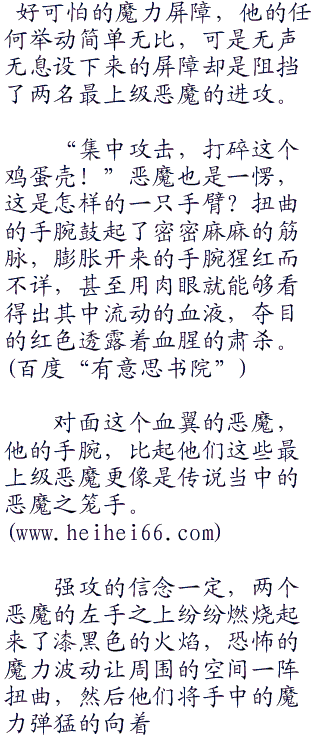 好可怕的魔力屏障，他的任
何举动简单无比，可是无声
无息设下来的屏障却是阻挡
了两名最上级恶魔的进攻。
“集中攻击，打碎这个
鸡蛋壳！”恶魔也是一愣，
这是怎样的一只手臂？扭曲
的手腕鼓起了密密麻麻的筋
脉，膨胀开来的手腕猩红而
不详，甚至用肉眼就能够看
得出其中流动的血液，夺目
的红色透露着血腥的肃杀。
(百度“有意思书院”)
对面这个血翼的恶魔，
他的手腕，比起他们这些最
上级恶魔更像是传说当中的
恶魔之笼手。
(www.heihei66.com)
强攻的信念一定，两个
恶魔的左手之上纷纷燃烧起
来了漆黑色的火焰，恐怖的
魔力波动让周围的空间一阵
扭曲，然后他们将手中的魔
力弹猛的向着